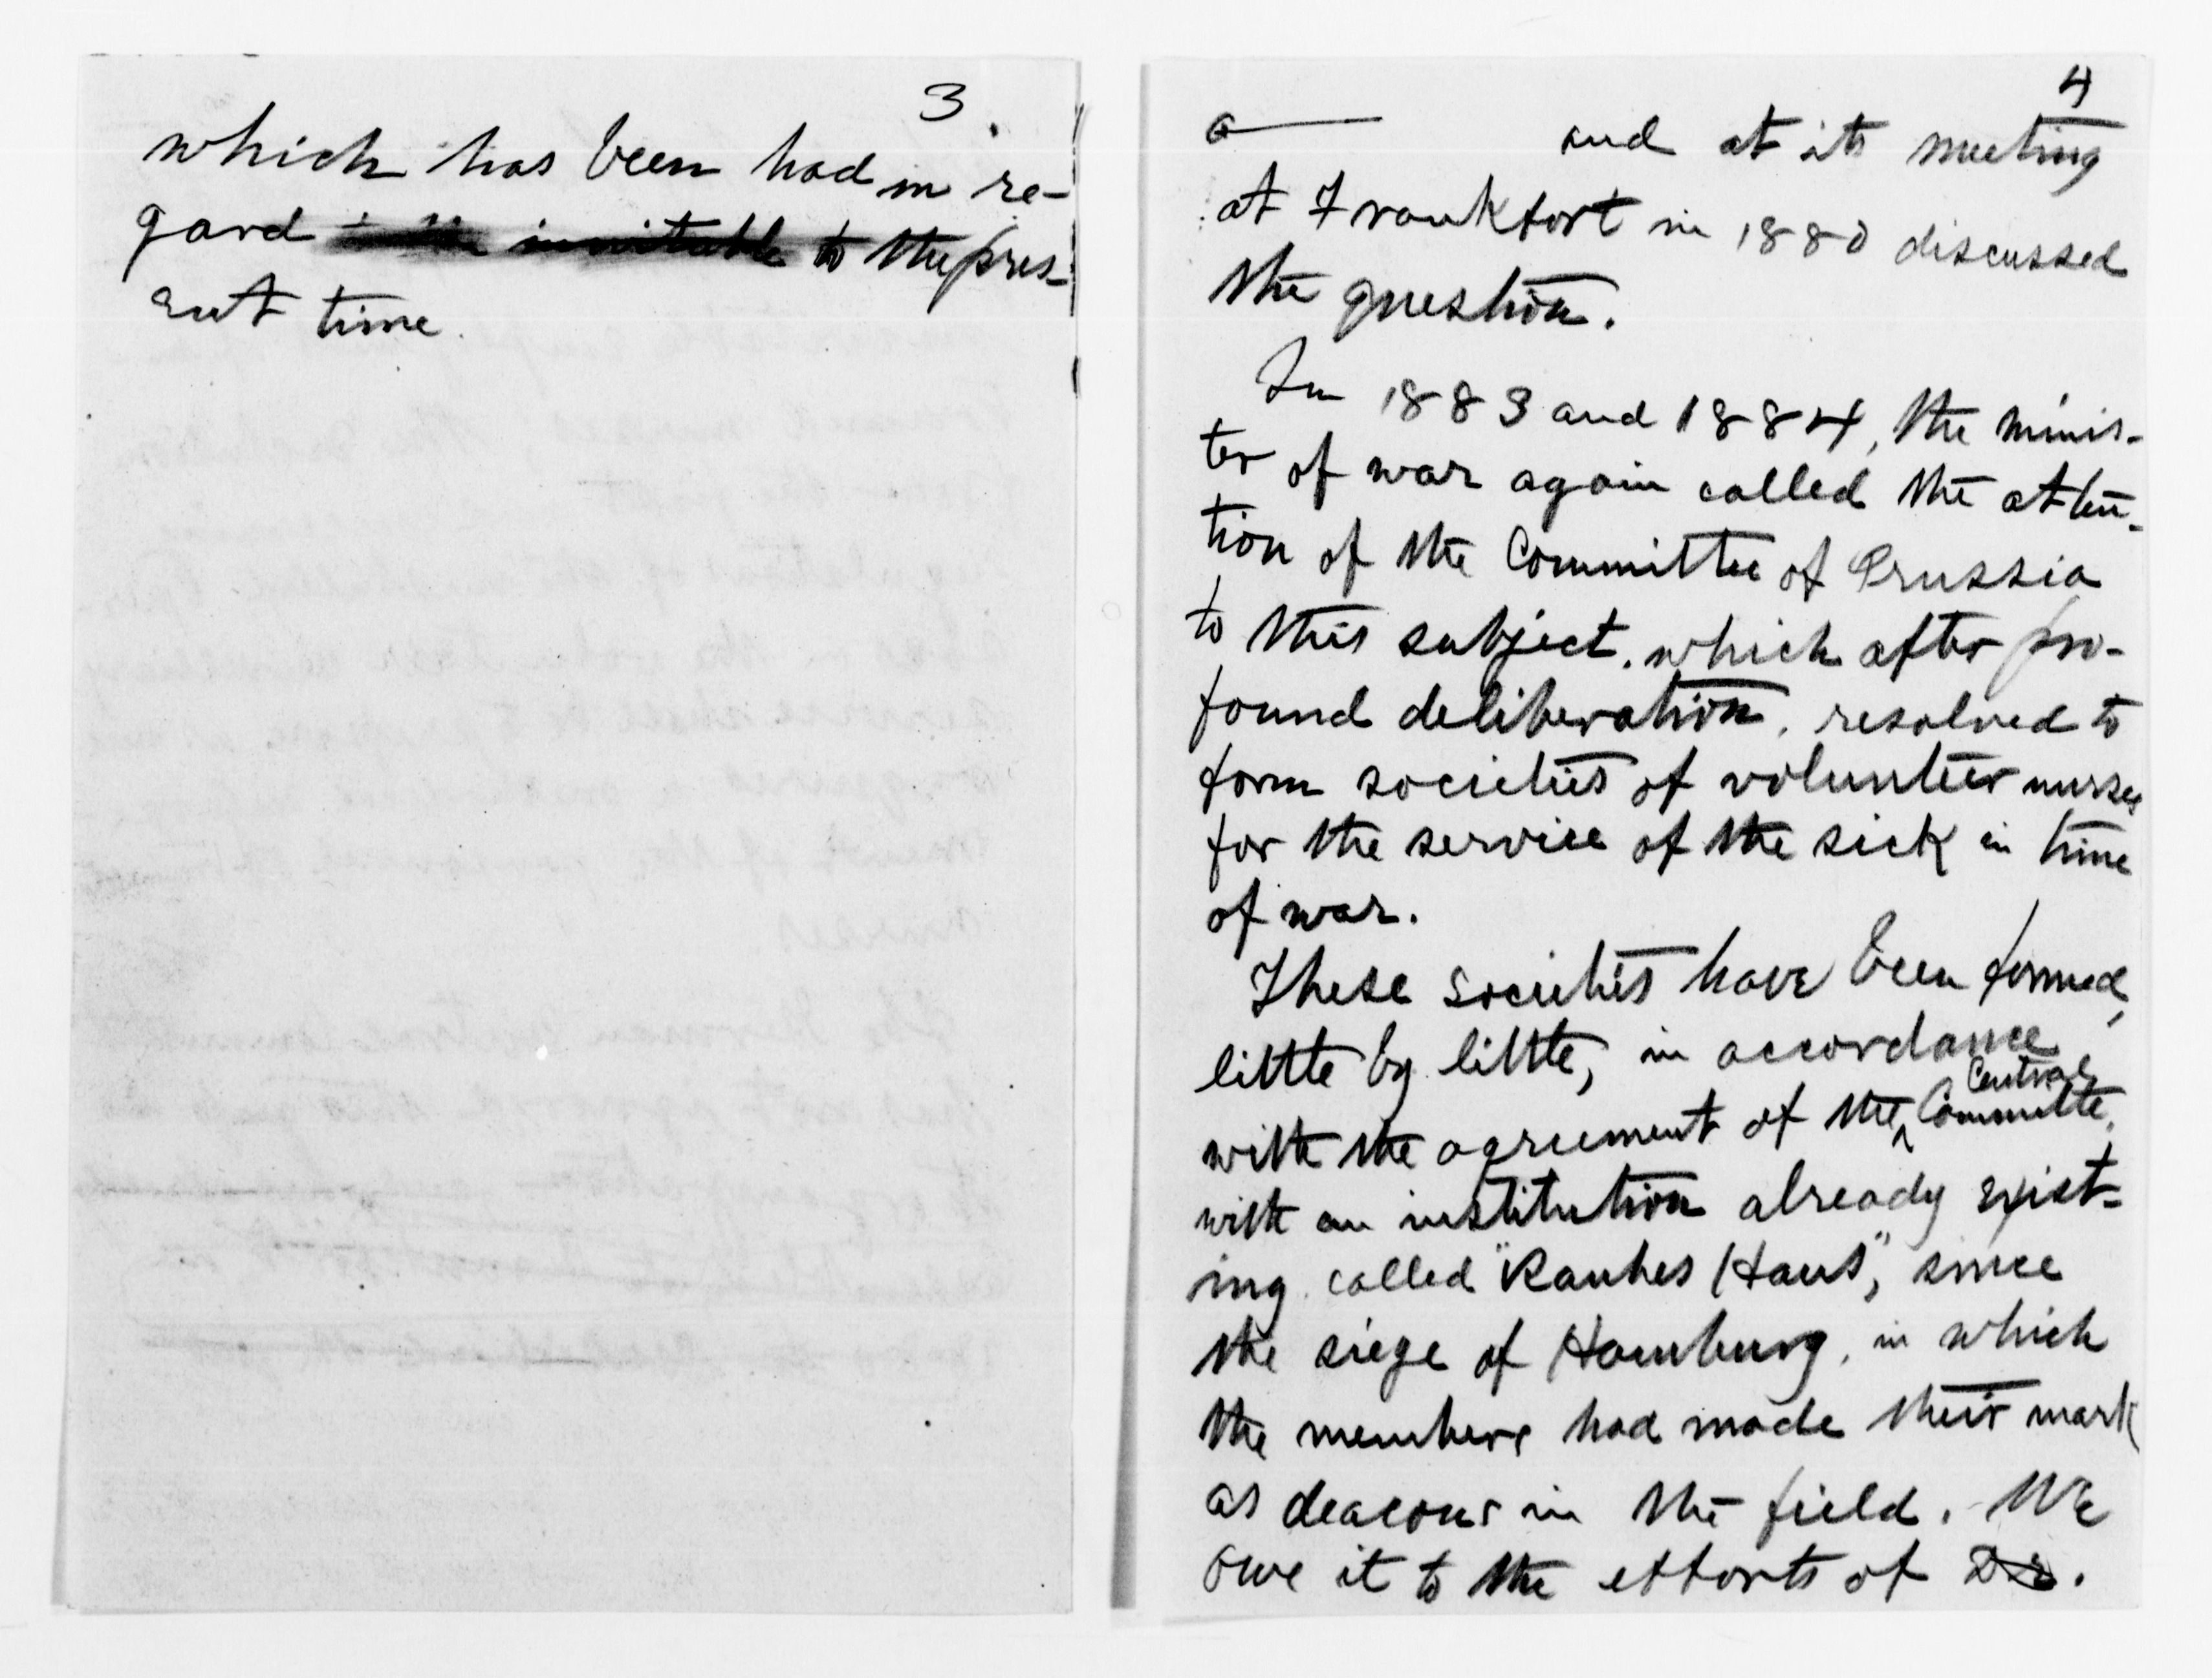 3.
which has been had in re-
gard to the pres-
ent time.
4
a and at its meeting
at Frankfort in 1880 discussed
the question.
In 1883 and 1884, the minis-
ter of war again called the atten-
tion of the Committee of Prussia
to this subject, which after pro-
found deliberation, resolved to
form societies of volunteer nurses
for the service of the sick in time
of war.
These societies have been formed,
little by little, in accordance
with the agreement of the Central Committe,
with an institution already exist-
ing called "Rauhes Haus", since
the siege of Hamburg, in which
the members had made their mark
as deacons in the field. We
owe it to the efforts of Dr.